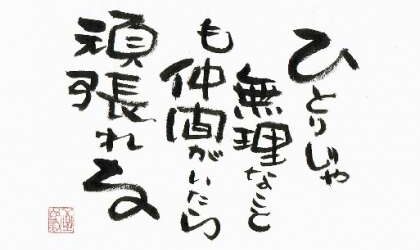 ひとりじゃ
無理なこと
も仲間がいたら
頑張れるの